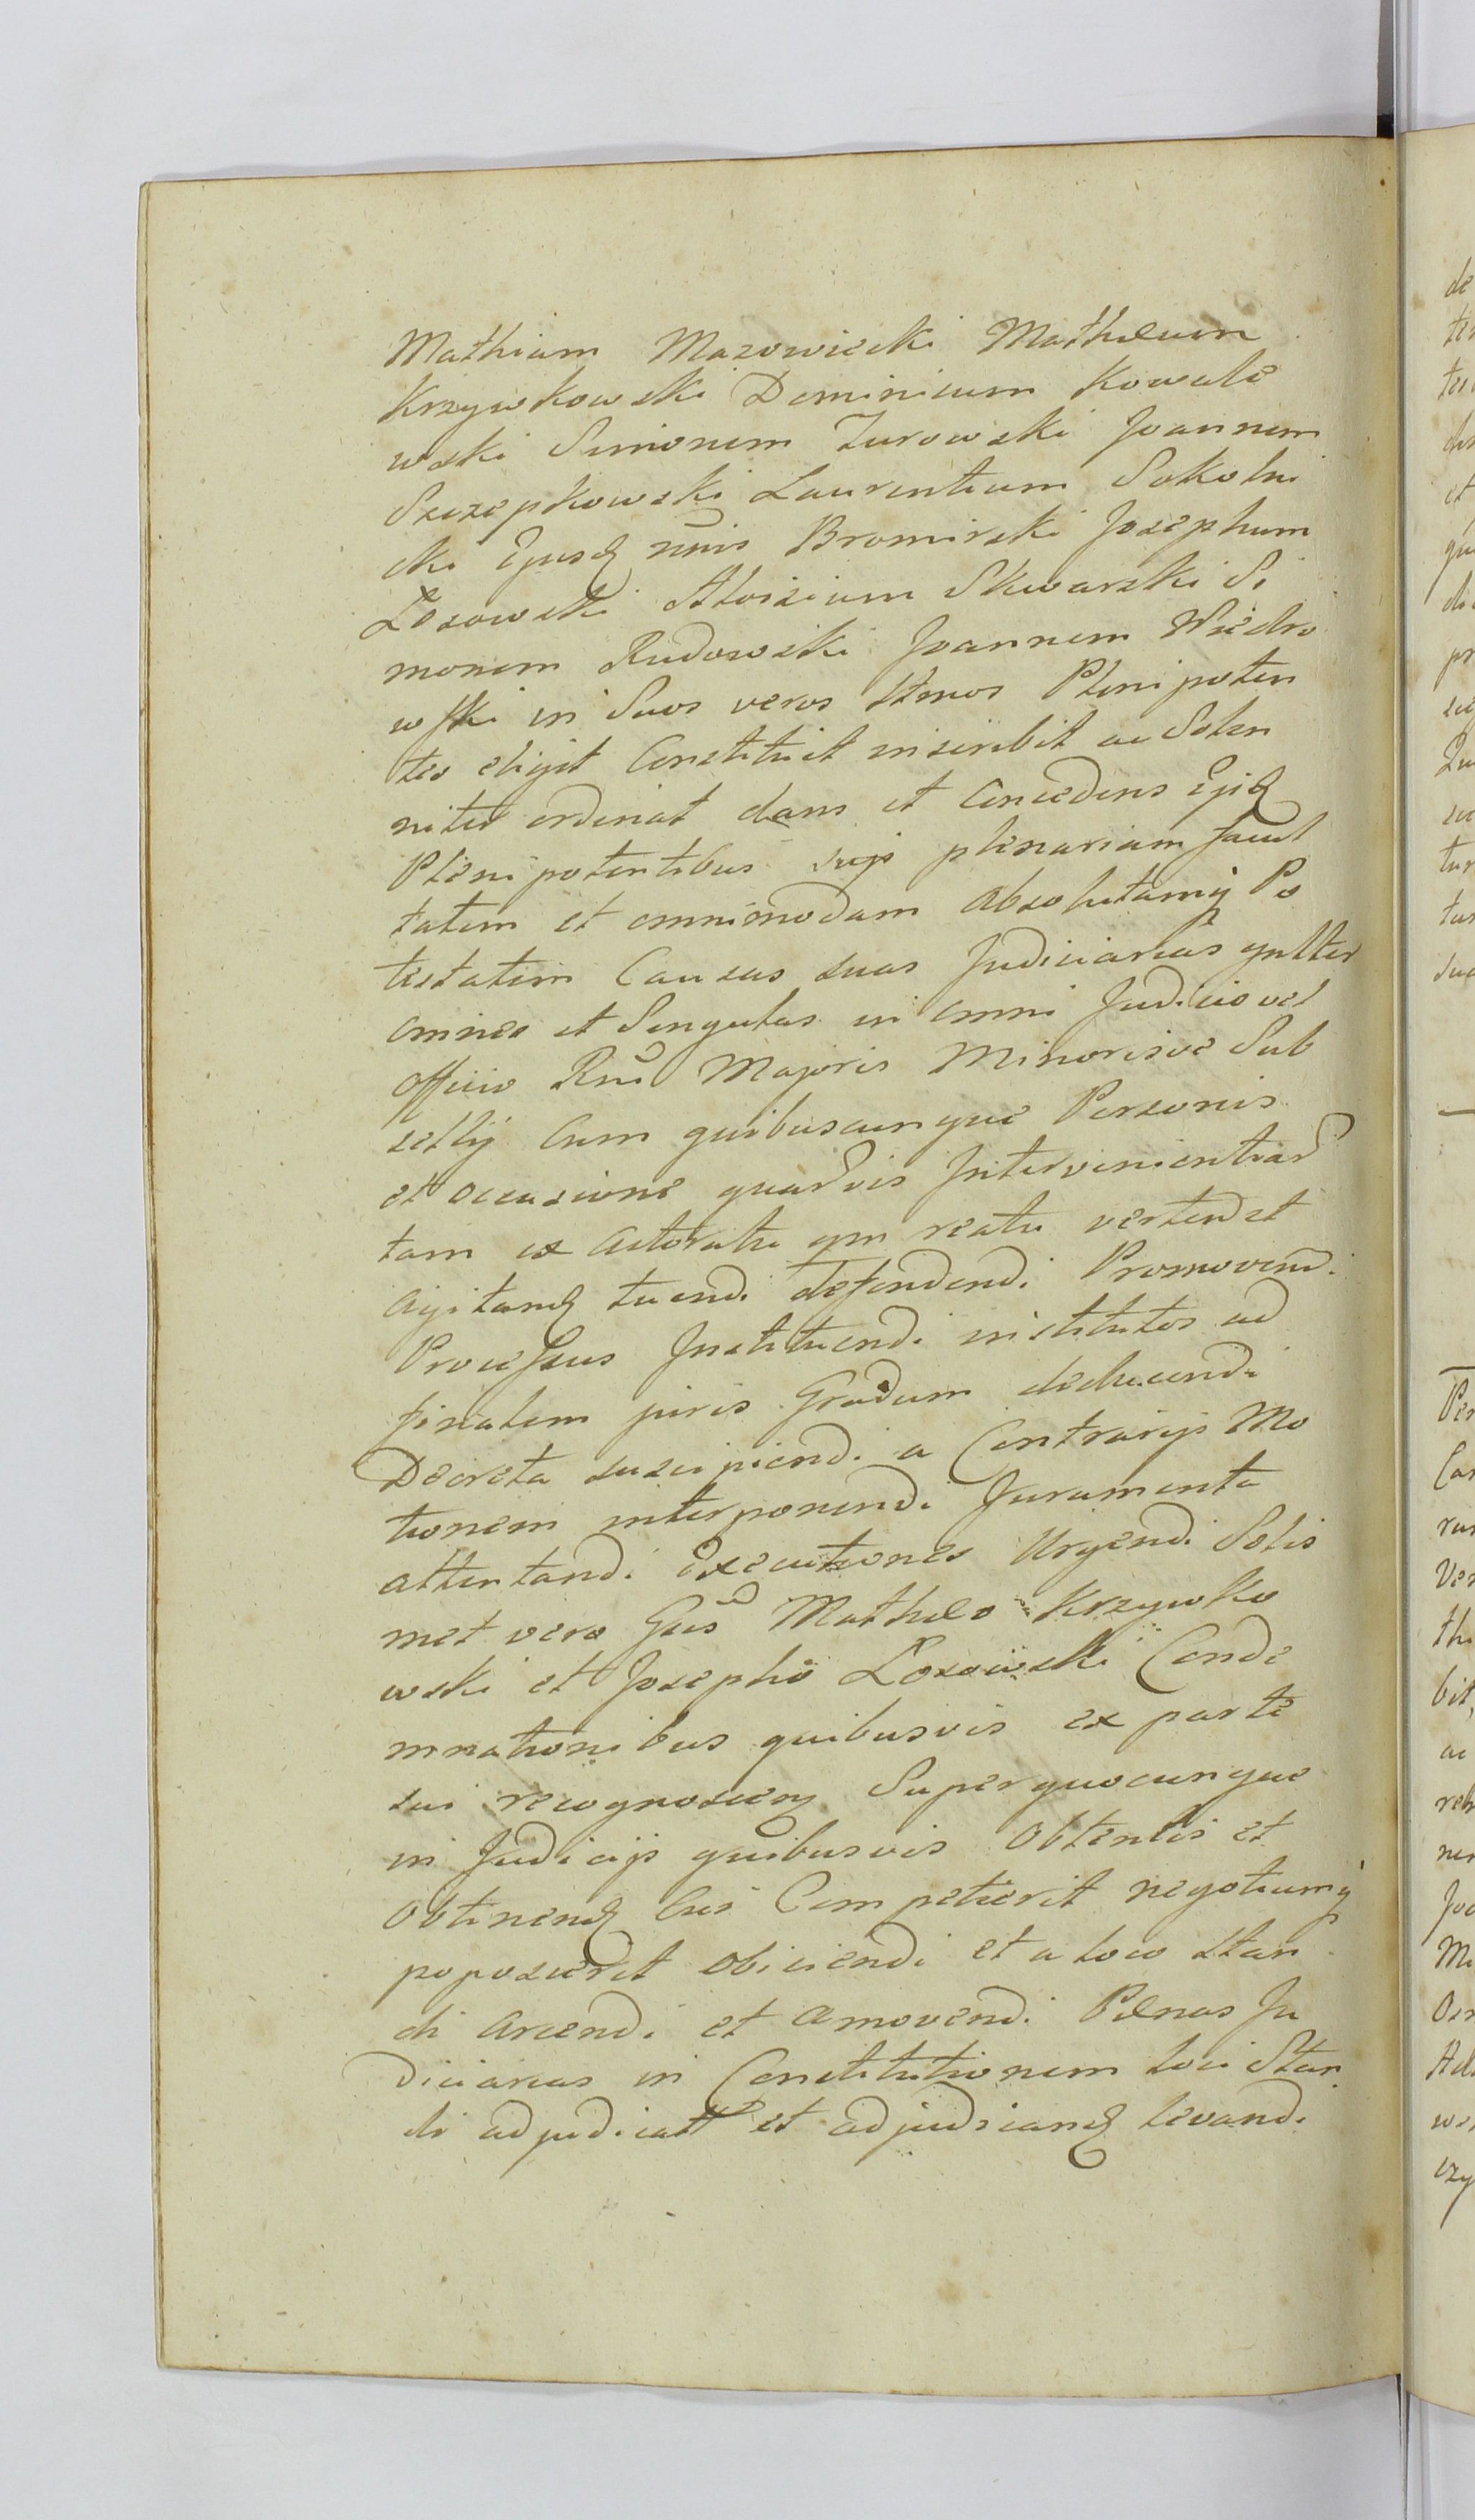 Mathiam Mazowiecki Matheum
Krzywkowski Dominicum Kowale
wski Simonem Zurowski Joannem
Szczepkowski Laurentium Sokolni
cki Ejusd nnis Bromirski Josephum
Łosowski Aloisium Skwarski Si
monem Rudowski Joannem Niedro
wski in Suos veros Plenipoten
tes eligit Constituit inscribit ac Solen
niter ordinat dans et Concedens
Plenipotentibus suis plenariam facul
tatem et omnimodam Absolutamq Po
testatem Causas suas Judiciarias gnlter
omnes et Singulas in omni Judicio vel
officio Rni Majoris Minorisve Sub
sellij Cum quibuscunque Personis
et occasione quarvis Intervenientiar
tam ex Actoratu qm reatu vertend et
Agitand tuendi defendendi Promovend.
Processus Instituendi institutos ad
finalem juris Gradum deducendi
Decreta suscipiendi a Contrarijs Mo
tionem interponendi Juramenta
attentandi Executiones Urgendi Solis
met vero Gsis Matheo Krzywko
wski et Josepho Łosowski Conde
mnationibus quibusvis ex parte
sui recognoscen Super quocunque
in Judicijs quibusvis Obtentis et
Obtinend Competierit negotiumq
poposcerit obiiciendi et a loco stan
di arcendi et Amovendi Pænas Ju
diciarias in Constitutionem loci Stan
di adjudicatt et adjudicand levandi